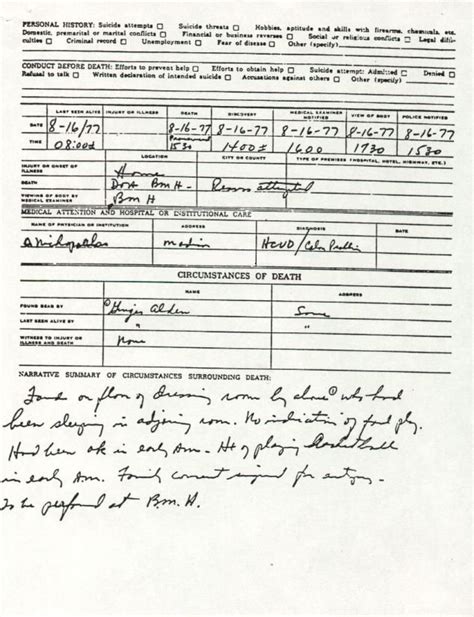 PERSONAL HISTORY: Suicide attempts ☐ Suicide threats ☐ Hobbies, aptitude and skills with firearms, chemicals, etc.
Domestic, premarital or marital conflicts ☐ Financial or business reverses ☐ Social or religious conflicts ☐ Legal diffi-
culties ☐ Criminal record ☐ Unemployment ☐ Fear of disease ☐ Other (specify)
CONDUCT BEFORE DEATH: Efforts to prevent help ☐ Efforts to obtain help ☐ Suicide attempt: Admitted ☐ Denied ☐
Refusal to talk ☐ Written declaration of intended suicide ☐ Accusations against others ☐ Other (specify)
LAST SEEN ALIVE INJURY OR ILLNESS DEATH DISCOVERY MEDICAL EXAMINER NOTIFIED VIEW OF BODY POLICE NOTIFIED
DATE 8-16/77 8-16-77 8-16-77 8-16-77 8-16-77 8-16-77
TIME 0800± Pronounced 1530 1400± 1600 1730 1530
LOCATION CITY OR COUNTY TYPE OF PREMISES (HOSPITAL, HOTEL, HIGHWAY, ETC.)
INJURY OR ONSET OF ILLNESS Home
DEATH DOA BMH - Resus attempted
VIEWING OF BODY BY MEDICAL EXAMINER BMH
MEDICAL ATTENTION AND HOSPITAL OR INSTITUTIONAL CARE
NAME OF PHYSICIAN OR INSTITUTION ADDRESS DIAGNOSIS DATE
HCVD/Colon
CIRCUMSTANCES OF DEATH
NAME ADDRESS
FOUND DEAD BY Ginger Alden Same
LAST SEEN ALIVE BY " "
WITNESS TO INJURY OR ILLNESS AND DEATH None
NARRATIVE SUMMARY OF CIRCUMSTANCES SURROUNDING DEATH:
Found on floor of dressing room by above ① who had
been sleeping in adjoining room. No indication of foul play.
Had been ok in early Am. Hx of playing basketball
in early Am. Family consent signed for autopsy
to be performed at B.M.H.